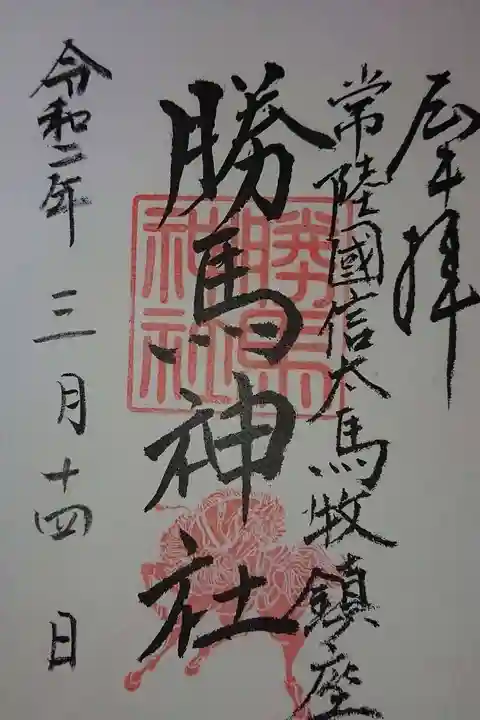 奉拝
常陸國信太馬牧鎮座
勝馬神社
令和二年 三月十四日
勝馬神社